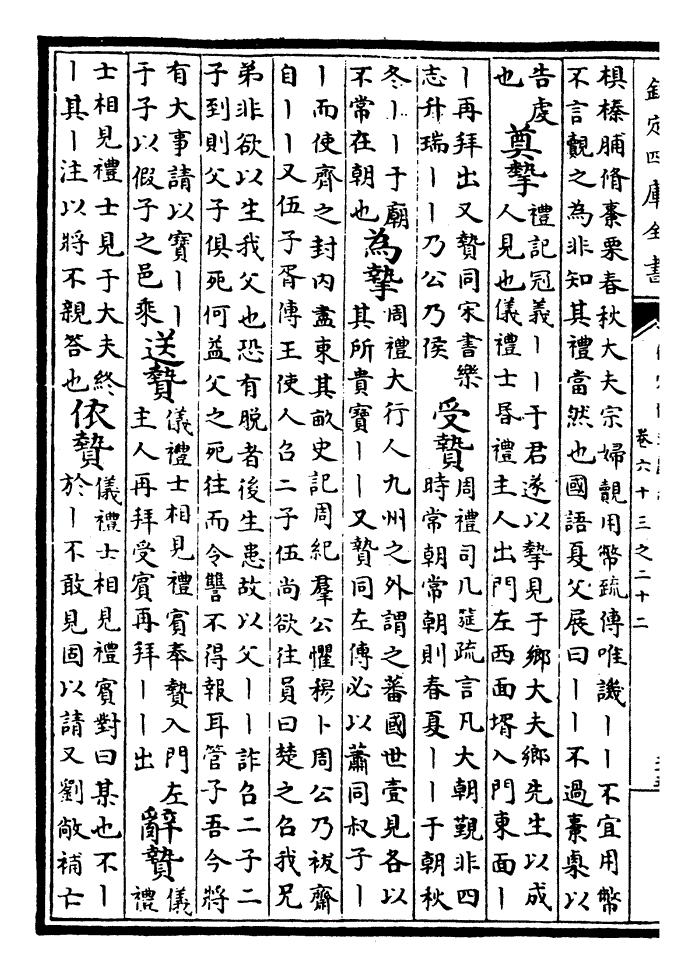 欽定四庫全書
卷六十三之二十二
椇榛脯脩棗栗春秋大夫宗婦覿用幣疏傳唯譏丨丨不宜用幣
不言覿之為非知其禮當然也國語夏父展曰丨丨不過棗栗以
告虔
也
奠摯
禮記冠義丨丨于君遂以摯見于鄉大夫鄉先生以成
人見也儀禮士昏禮主人出門左西面壻入門東面丨
丨再拜出又贄同宋書樂
志升瑞丨丨乃公乃侯
受贄
周禮司几筵疏言凡大朝覲非四
時常朝常朝則春夏丨丨于朝秋
冬丨丨于廟
不常在朝也
為摯
周禮大行人九州之外謂之蕃國世壹見各以
其所貴寶丨丨又贄同左傳必以蕭同叔子丨
丨而使齊之封內盡東其畝史記周紀羣公懼穆卜周公乃祓齋
自丨丨又伍子胥傳王使人召二子伍尚欲往員曰楚之召我兄
弟非欲以生我父也恐有脫者後生患故以父丨丨詐召二子二
子到則父子俱死何益父之死往而令讐不得報耳管子吾今將
有大事請以寶丨丨
于子以假子之邑乘
送贄
儀禮士相見禮賓奉贄入門左
主人再拜受賓再拜丨丨出
辭贄
儀
禮
士相見禮士見于大夫終
丨其丨注以將不親答也
依贄
儀禮士相見禮賓對曰某也不丨
於丨不敢見固以請又劉敞補亡